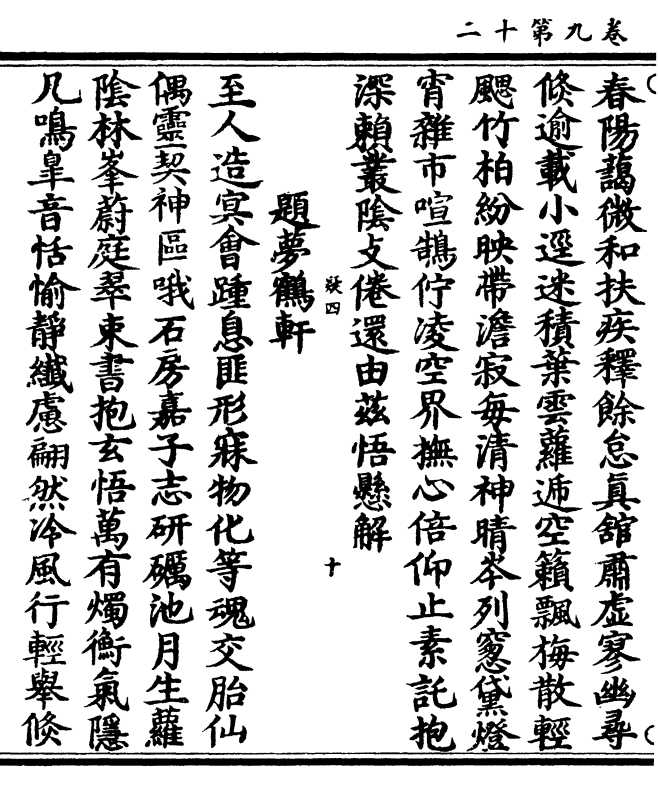 卷九第十二
春陽藹微和扶疾釋餘怠真舘肅虛寥幽尋
倐逾載小逕迷積葉雲蘿遞空籟飄梅散輕
颸竹柏紛映帶澹寂每清神晴岑列窓黛燈
宵雜市喧鵠佇凌空界撫心倍仰止素託抱
深賴叢陰攴倦還由茲悟懸解
炎四
十
題夢鶴軒
至人造冥會踵息匪形寐物化等魂交胎仙
偶靈契神區哦石房嘉子志研礪池月生蘿
陰林峯蔚庭翠束書抱玄悟萬有燭衡氣隱
几鳴皐音恬愉靜纖慮翩然冷風行輕舉倐